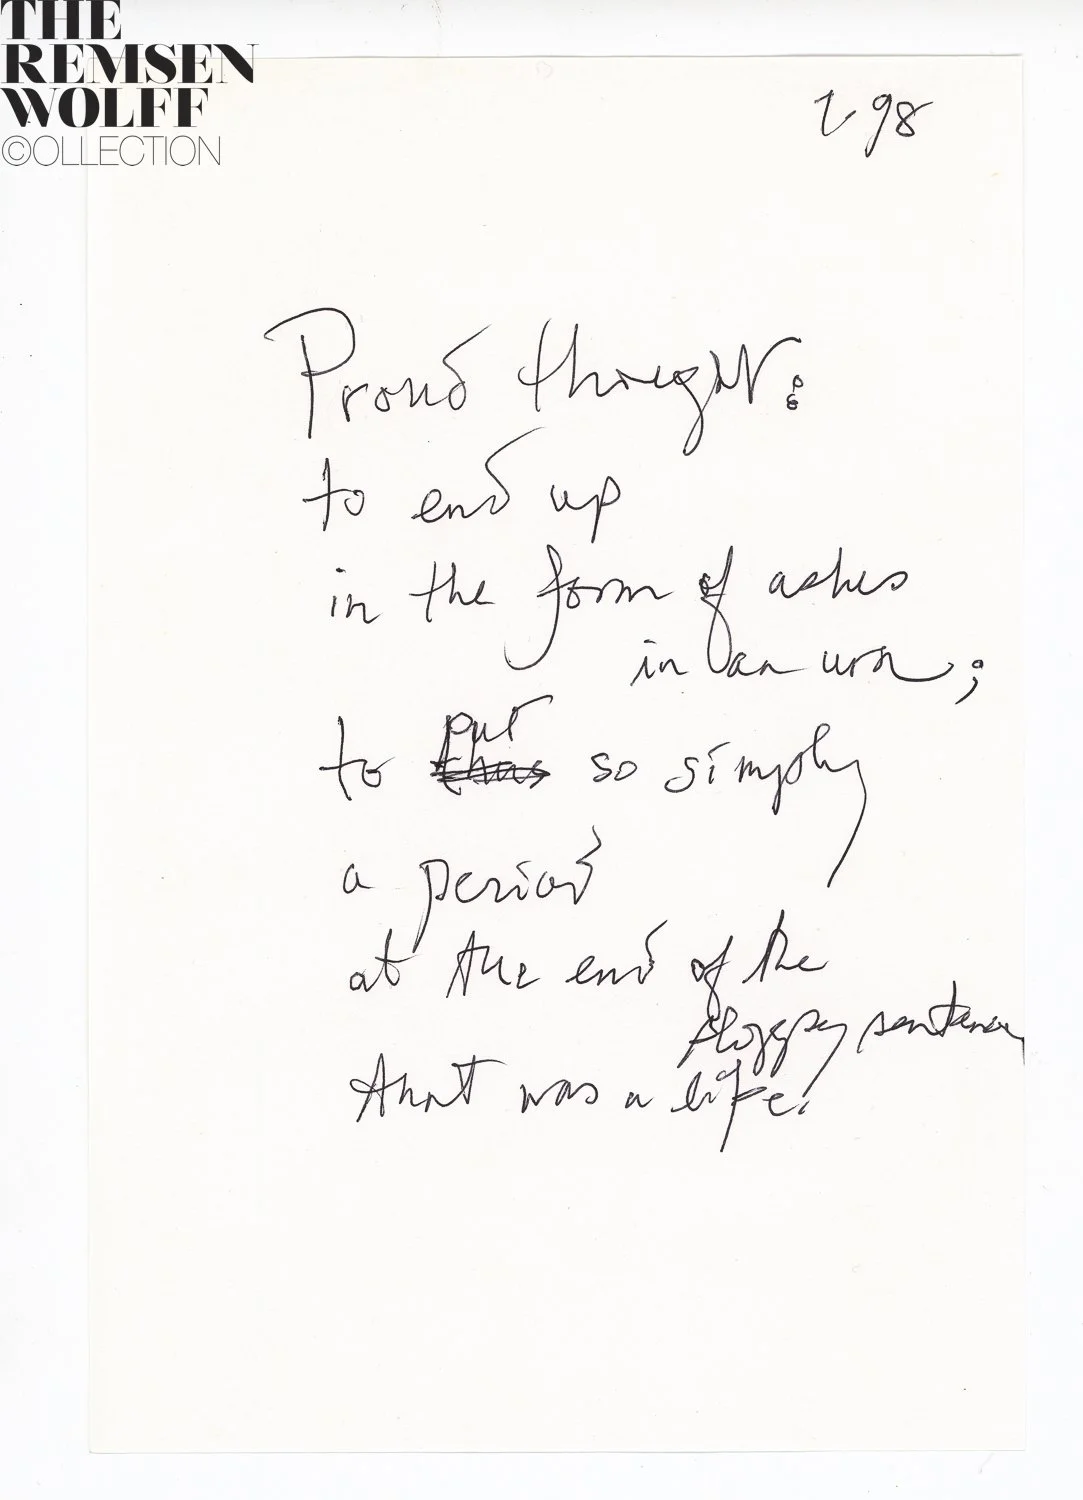 THE
REMSEN
WOLFF
©OLLECTION
2 98
Proud thought:
to end up
in the form of ashes
in an urn;
to put so simply
a period
at the end of the
sloppy sentence
that was a life.